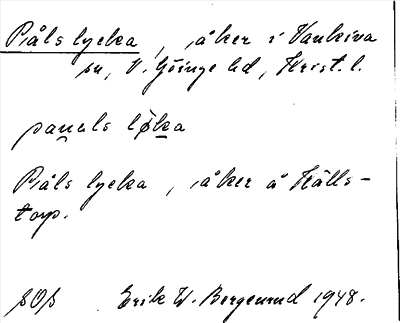 Påls lycka, åker i Vankiva
sn, V. Göinge hd, Krist. l.
pauals løka
Påls lycka, åker å Hälls-
torp.
SOS Erik W. Bergemrud 1948.